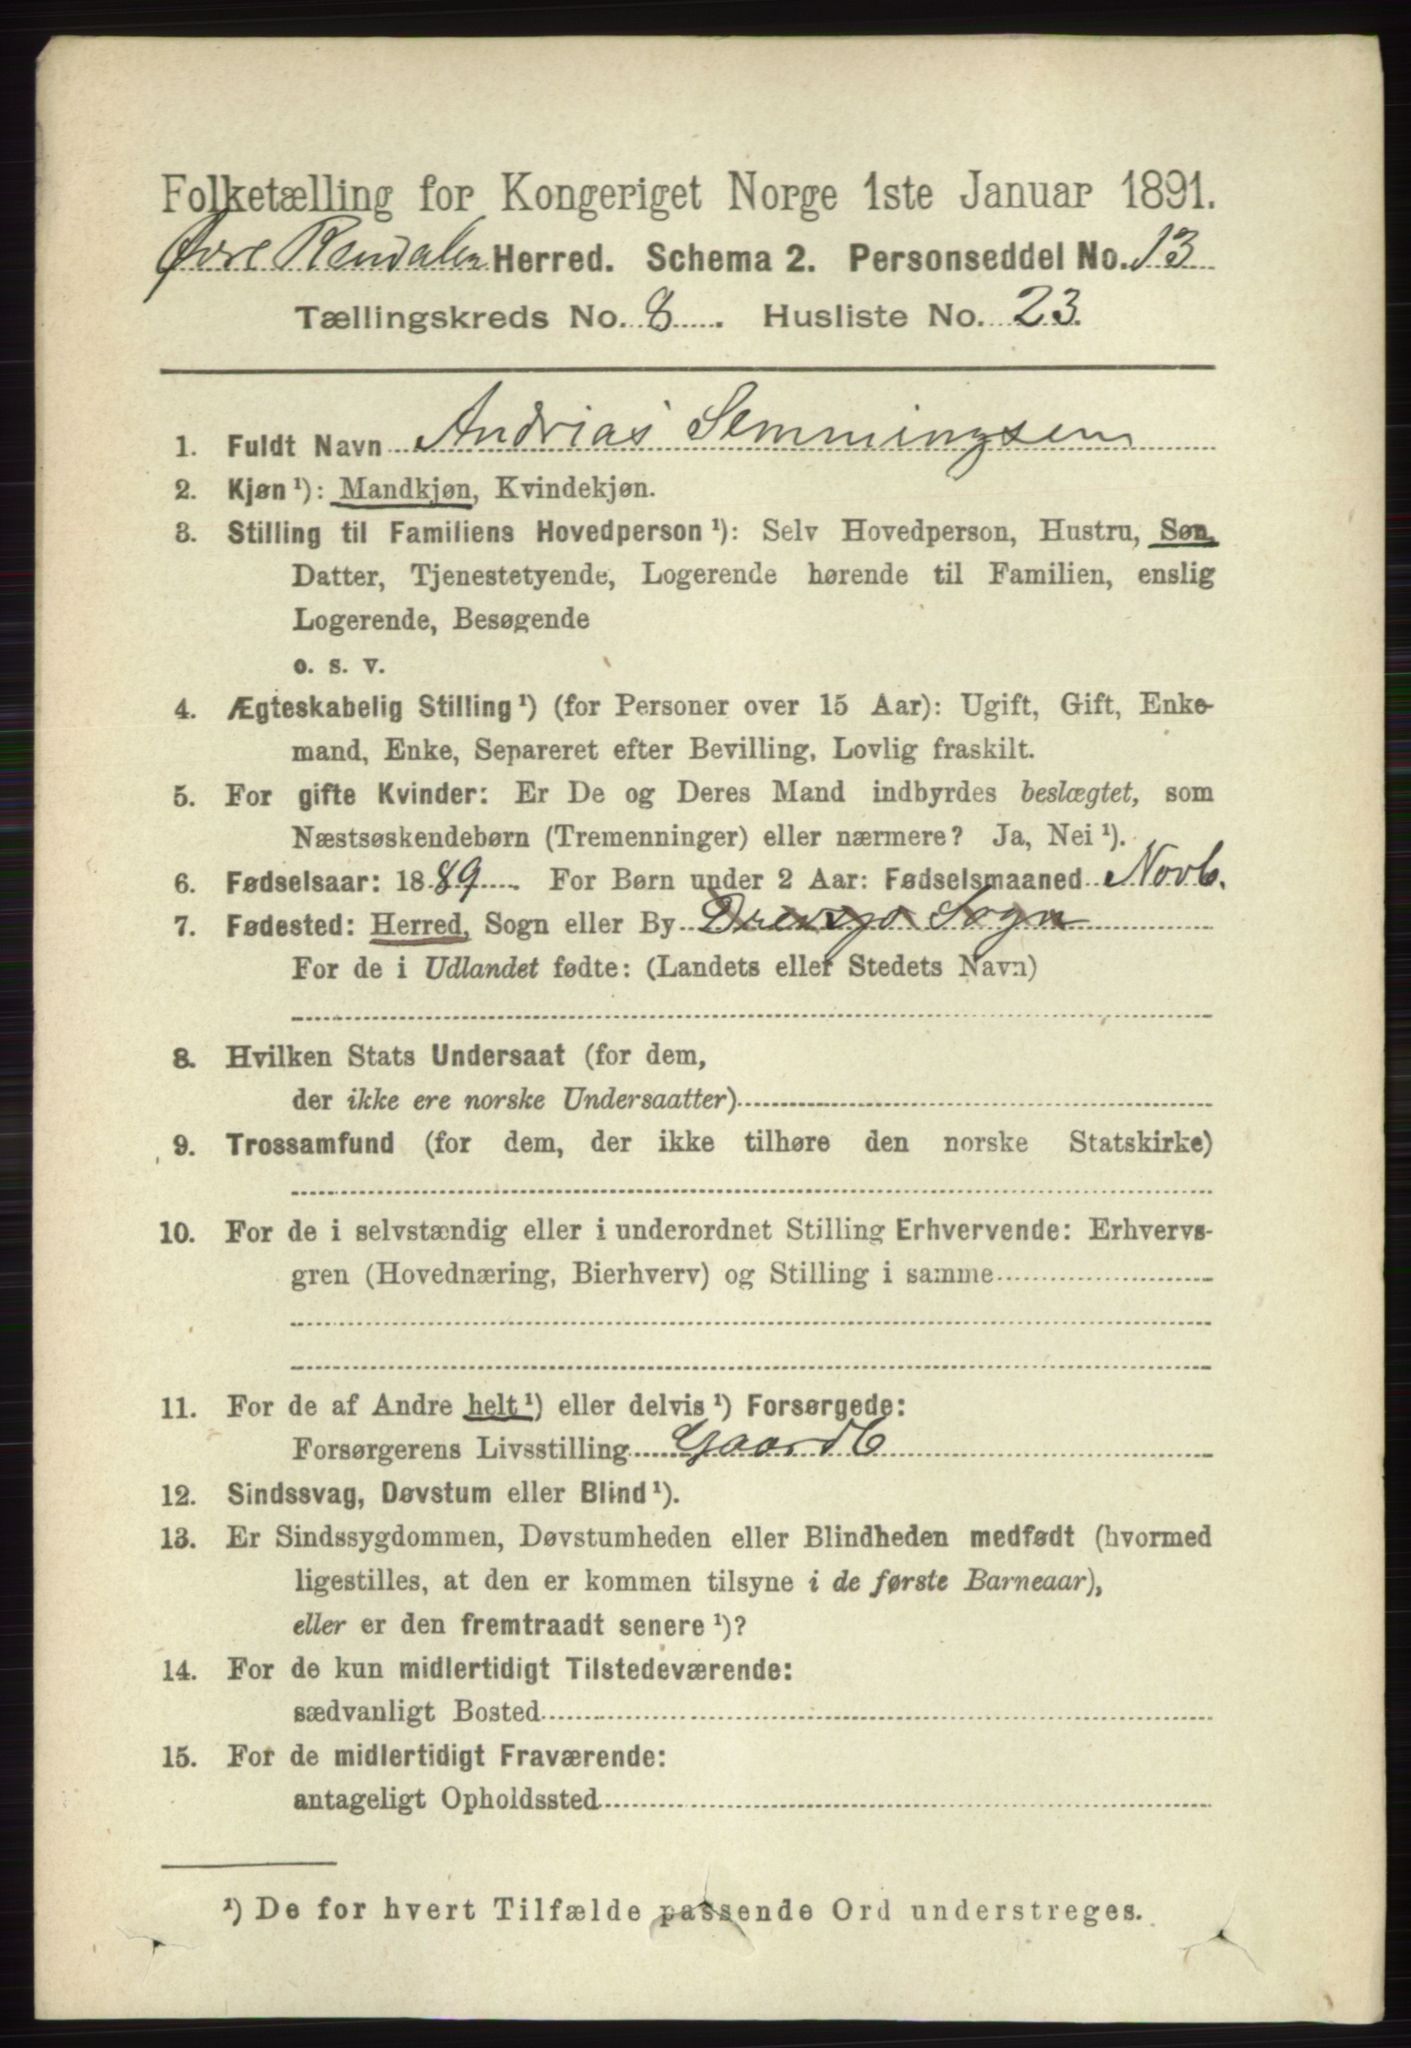 Folketælling for Kongeriget Norge 1ste Januar 1891.
Øvre Rendalen Herred. Schema 2. Personseddel No. 13
Tællingskreds No. 8. Husliste No. 23.
1. Fuldt Navn Andrias Semmingsen
2. Kjøn¹): Mandkjøn, Kvindekjøn.
3. Stilling til Familiens Hovedperson¹): Selv Hovedperson, Hustru, Søn,
Datter, Tjenestetyende, Logerende hørende til Familien, enslig
Logerende, Besøgende
o. s. v.
4. Ægteskabelig Stilling¹) (for Personer over 15 Aar): Ugift, Gift, Enke-
mand, Enke, Separeret efter Bevilling, Lovlig fraskilt.
5. For gifte Kvinder: Er De og Deres Mand indbyrdes beslægtet, som
Næstsøskendebørn (Tremenninger) eller nærmere? Ja, Nei¹).
6. Fødselsaar: 1889. For Børn under 2 Aar: Fødselsmaaned Novb.
7. Fødested: Herred, Sogn eller By Sogn
For de i Udlandet fødte: (Landets eller Stedets Navn)
8. Hvilken Stats Undersaat (for dem,
der ikke ere norske Undersaatter)
9. Trossamfund (for dem, der ikke tilhøre den norske Statskirke)
10. For de i selvstændig eller i underordnet Stilling Erhvervende: Erhvervs-
gren (Hovednæring, Bierhverv) og Stilling i samme
11. For de af Andre helt¹) eller delvis¹) Forsørgede:
Forsørgerens Livsstilling Gaardb
12. Sindssvag, Døvstum eller Blind¹).
13. Er Sindssygdommen, Døvstumheden eller Blindheden medfødt (hvormed
ligestilles, at den er kommen tilsyne i de første Barneaar),
eller er den fremtraadt senere¹)?
14. For de kun midlertidigt Tilstedeværende:
sædvanligt Bosted
15. For de midlertidigt Fraværende:
antageligt Opholdssted
¹) De for hvert Tilfælde passende Ord understreges.